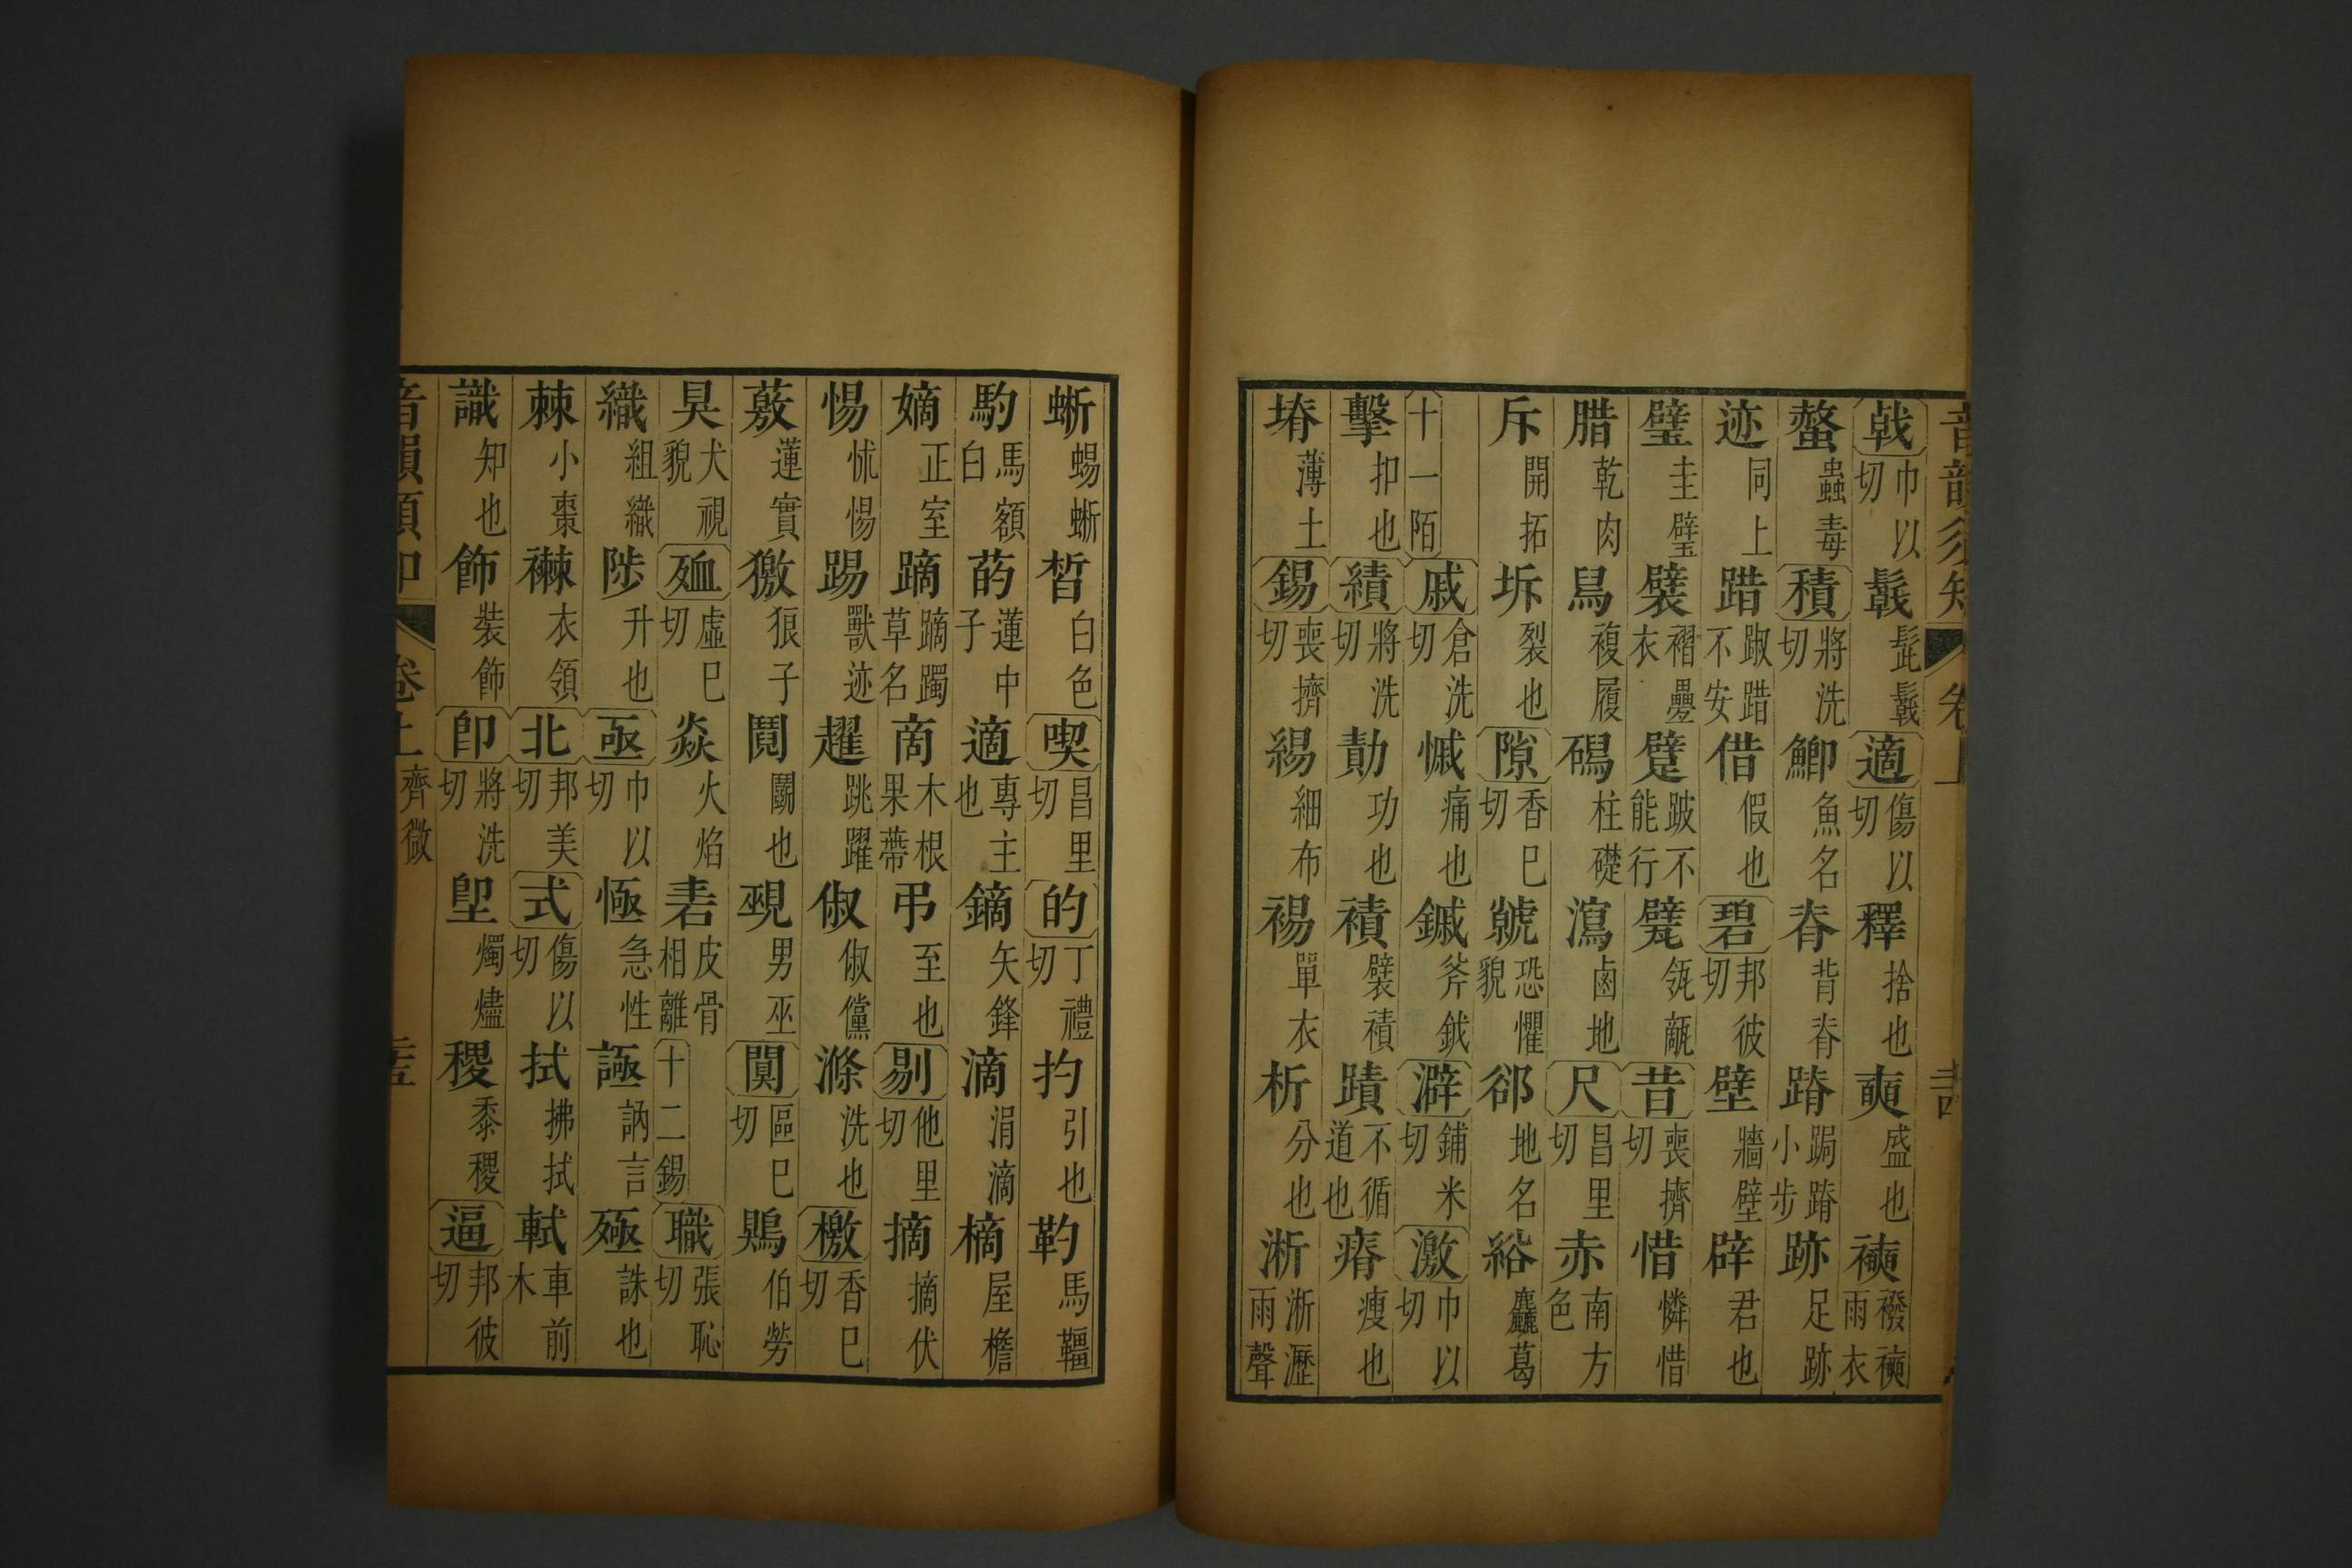 戟巾以切髢髲髢適傷以切釋捨也奭盛也襫襏襫雨衣
螫蟲毒積將洗切鯽魚名脊背脊蹐跼蹐小步跡足跡
迹同上踖踧踖不安借假也碧邦彼切壁牆壁辟君也
璧圭璧襞褶疊衣躄跛不能行甓瓴甋昔喪擠切惜憐惜
腊乾肉舄複履碣柱礎潟鹵地尺昌里切赤南方色
斥開拓坼裂也隙香巳切虩恐懼貌郤地名綌麤葛
十一陌戚倉洗切慽痛也鏚斧鉞澼鋪米切激巾以切
擊扣也績將洗切勣功也積襞積蹟不循道也瘠瘦也
塉薄土錫喪擠切緆細布裼單衣析分也淅淅瀝雨聲
蜥蜴蜥皙白色喫昌里切的丁禮切扚引也靮馬韁
馰馬額白菂蓮中子適專主也鏑矢鋒滴涓滴樀屋檐
嫡正室蹢蹢躅草名啇木根果蒂弔至也剔他里切摘摘伏
惕怵惕踢獸迹趯跳躍俶俶儻滌洗也檄香巳切
蔎蓮實獥狼子鬩鬭也覡男巫闃區巳切鶪伯勞
狊犬視貌殈虛巳切焱火焰砉皮骨相離十二錫職張恥切
織組織陟升也亟巾以切恆急性誣訥言殛誅也
棘小棗襋衣領北邦美切式傷以切拭拂拭軾車前木
識知也飾裝飾卽將洗切堲燭燼稷黍稷逼邦彼切
音韻須知 卷上 齊微